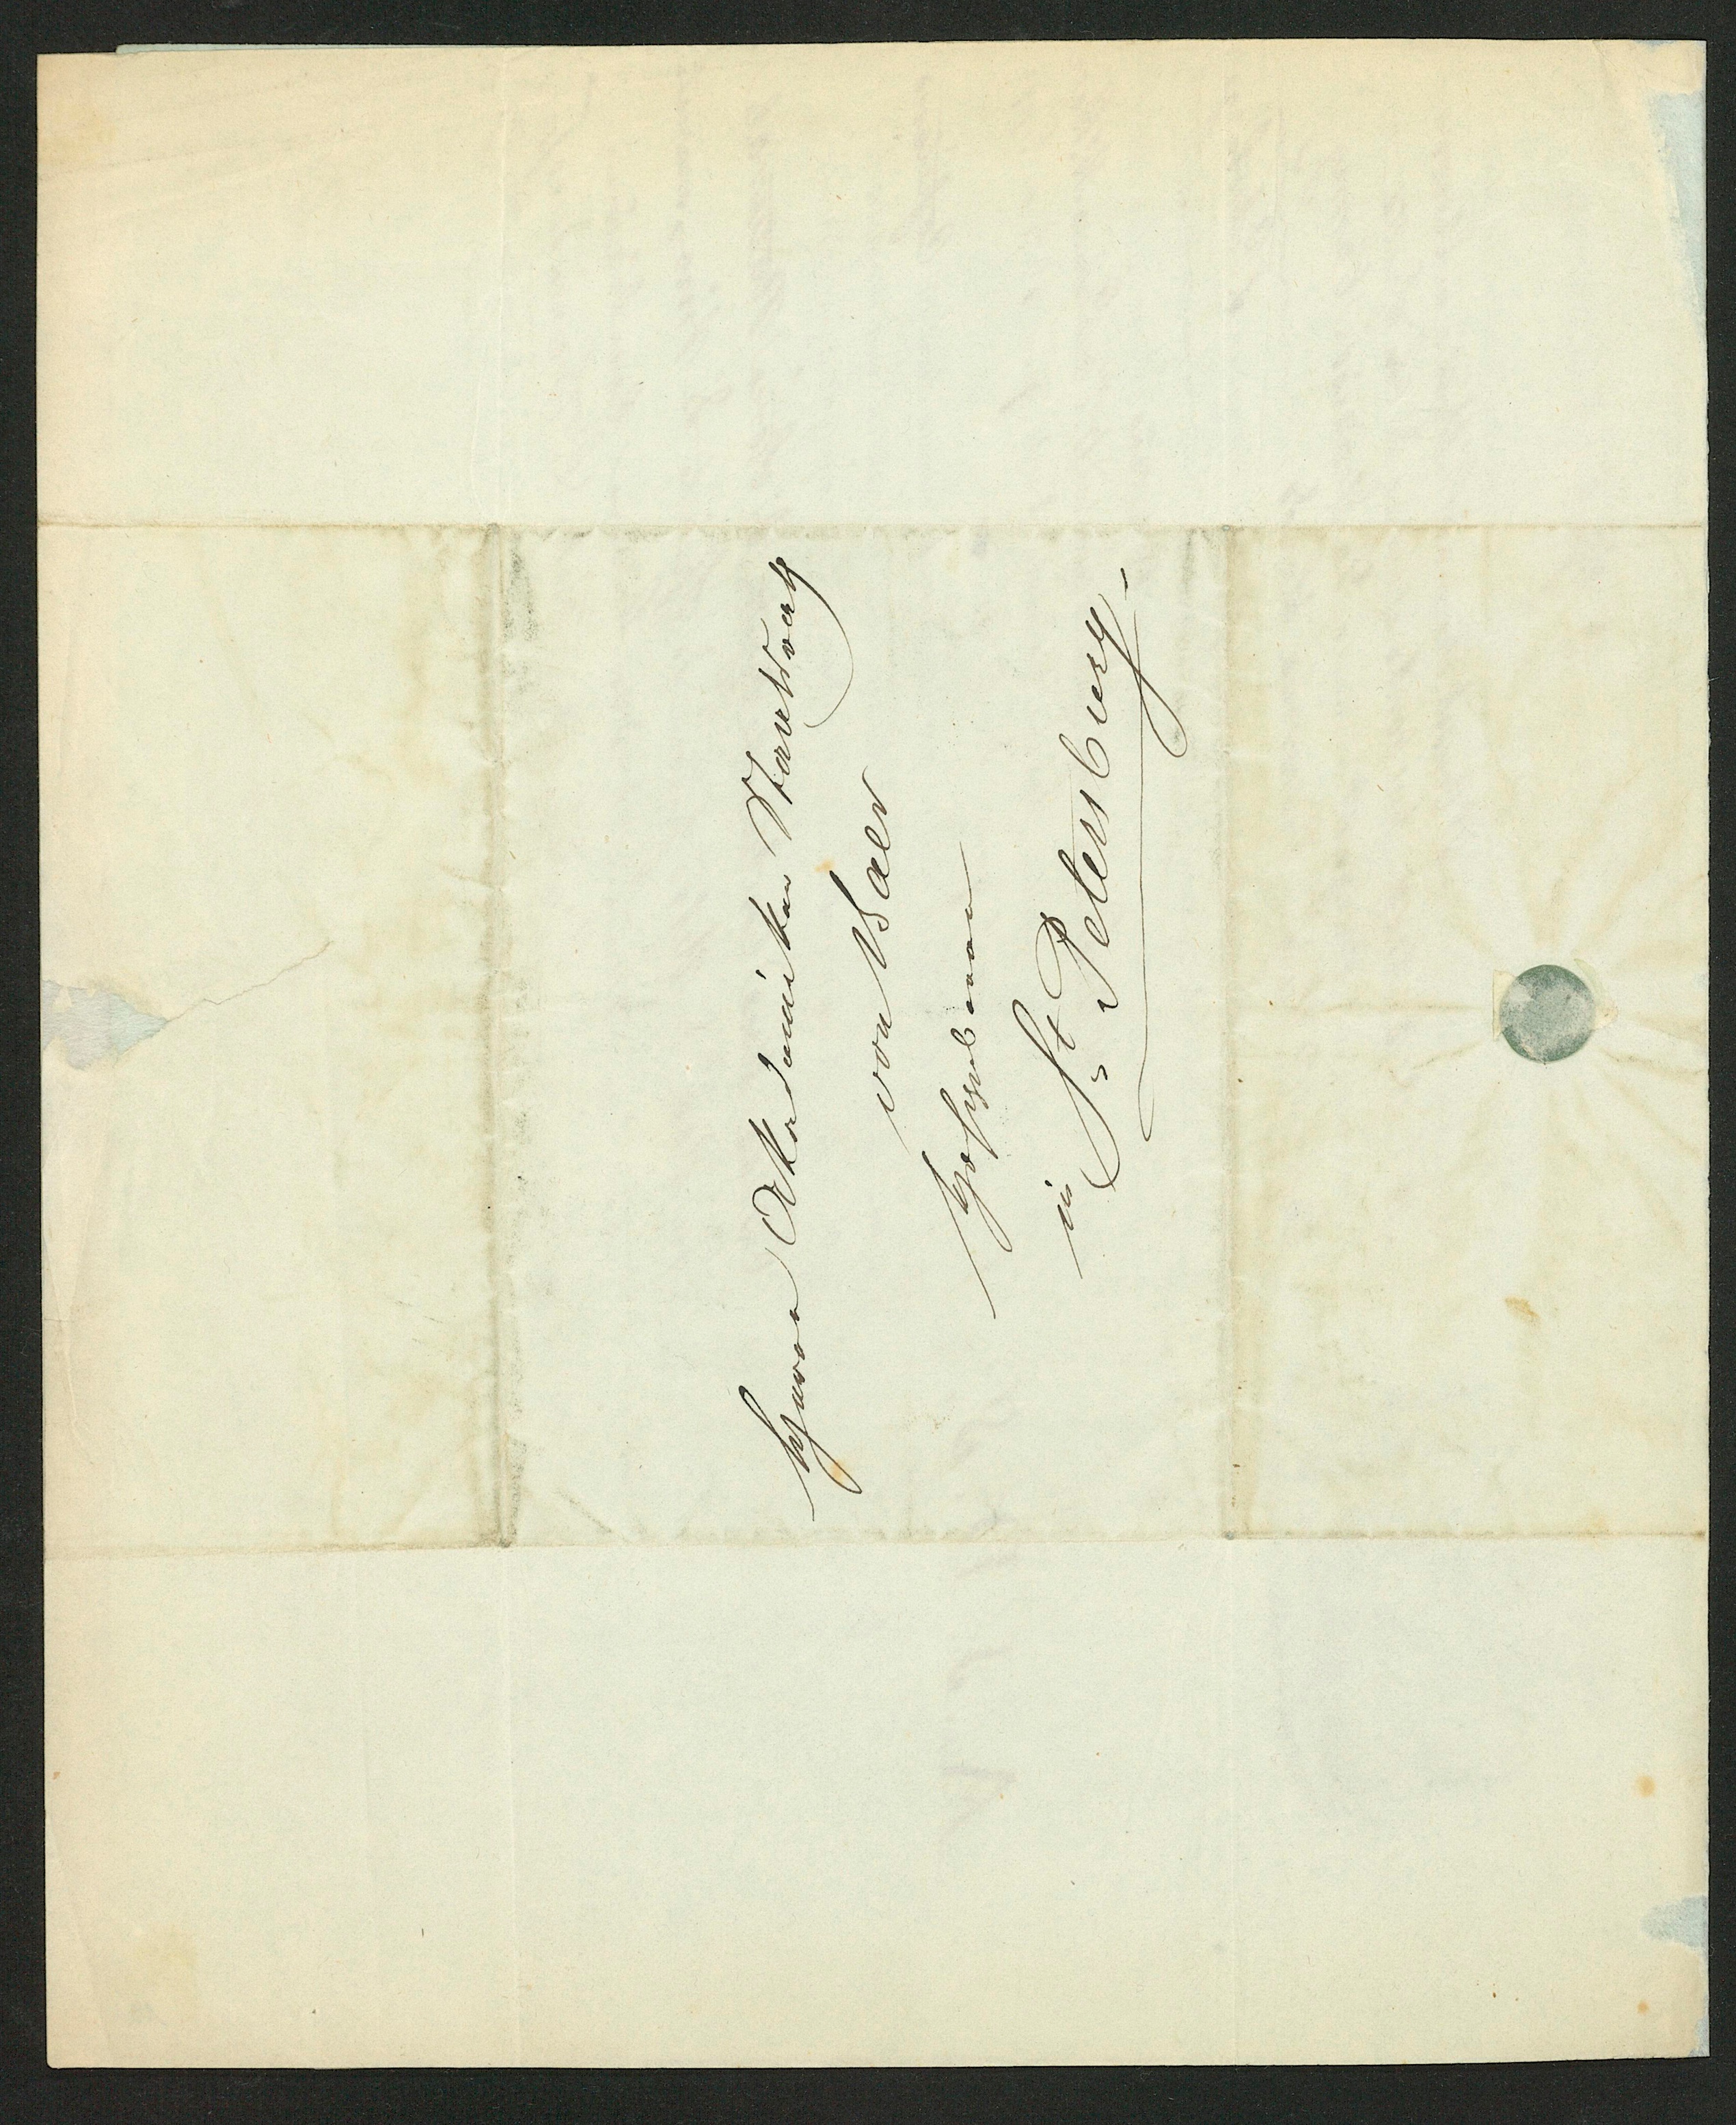 Herrn Akademiker Staatsrath
von Baer
Hochgeboren
in St. Petersburg.